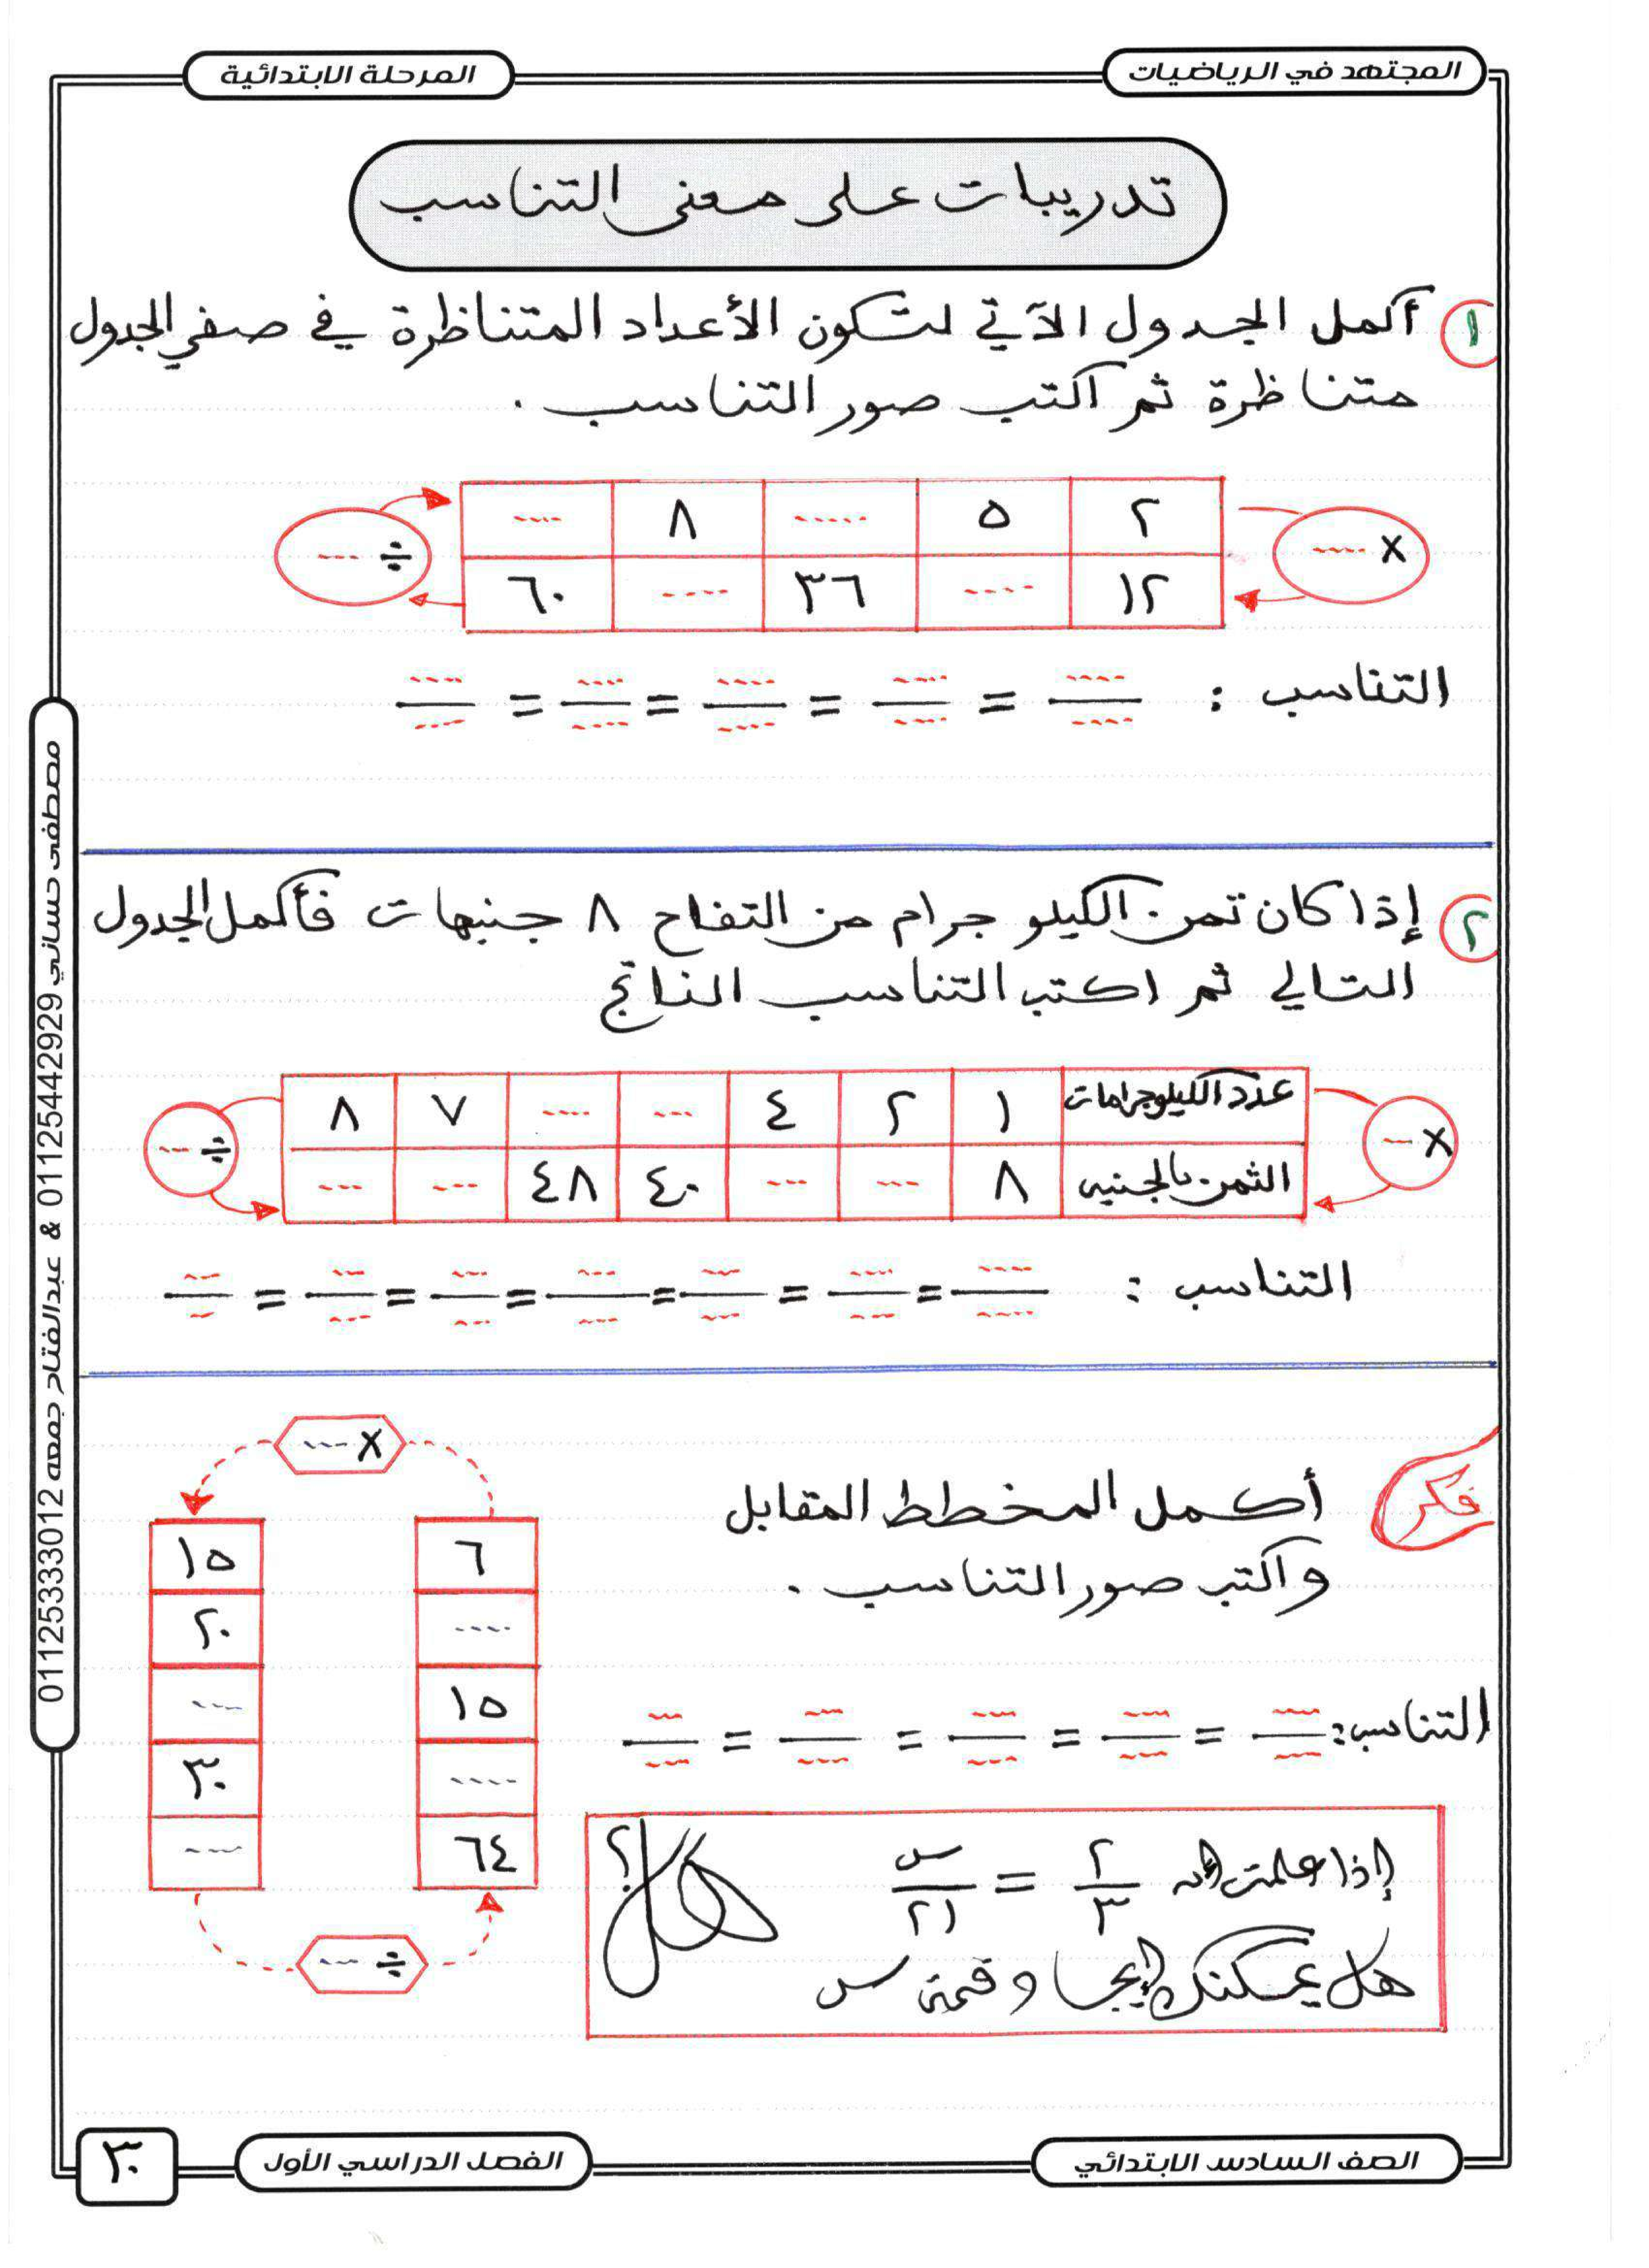 المجتهد في الرياضيات
المرحلة الابتدائية
تدريبات على معنى التناسب
١ أكمل الجدول الآتي لتكون الأعداد المتناظرة في صفي الجدول
متناظرة ثم اكتب صور التناسب .
× ---- ٢ ٥ ..... ٨ ---- ÷ ---
١٢ ---- ٣٦ ---- ٦٠
التناسب : ---- = ---- = ---- = ---- = ----
---- ---- ---- ---- ----
٢ إذا كان ثمن الكيلو جرام من التفاح ٨ جنيهات فأكمل الجدول
التالي ثم اكتب التناسب الناتج
× --- عدد الكيلوجرامات ١ ٢ ٤ --- ---- ٧ ٨ ÷ ---
الثمن بالجنيه ٨ --- --- ٤٠ ٤٨ --- ---
التناسب : ---- = --- = --- = --- = --- = --- = ---
---- --- --- --- --- --- ---
فكر
أكمل المخطط المقابل
واكتب صور التناسب .
× ---
٦ ١٥
---- ٢٠
١٥ ---
---- ٣٠
٦٤ ---
÷ ---
التناسب: --- = --- = --- = --- = ---
--- --- --- --- ---
إذا علمت أن ٢/٣ = س/٢١
هل يمكنك إيجاد قيمة س
هل ؟
مصطفى حساني 01125442929 & عبدالفتاح جمعه 01125333012
الصف السادس الابتدائي
الفصل الدراسي الأول
٣٠